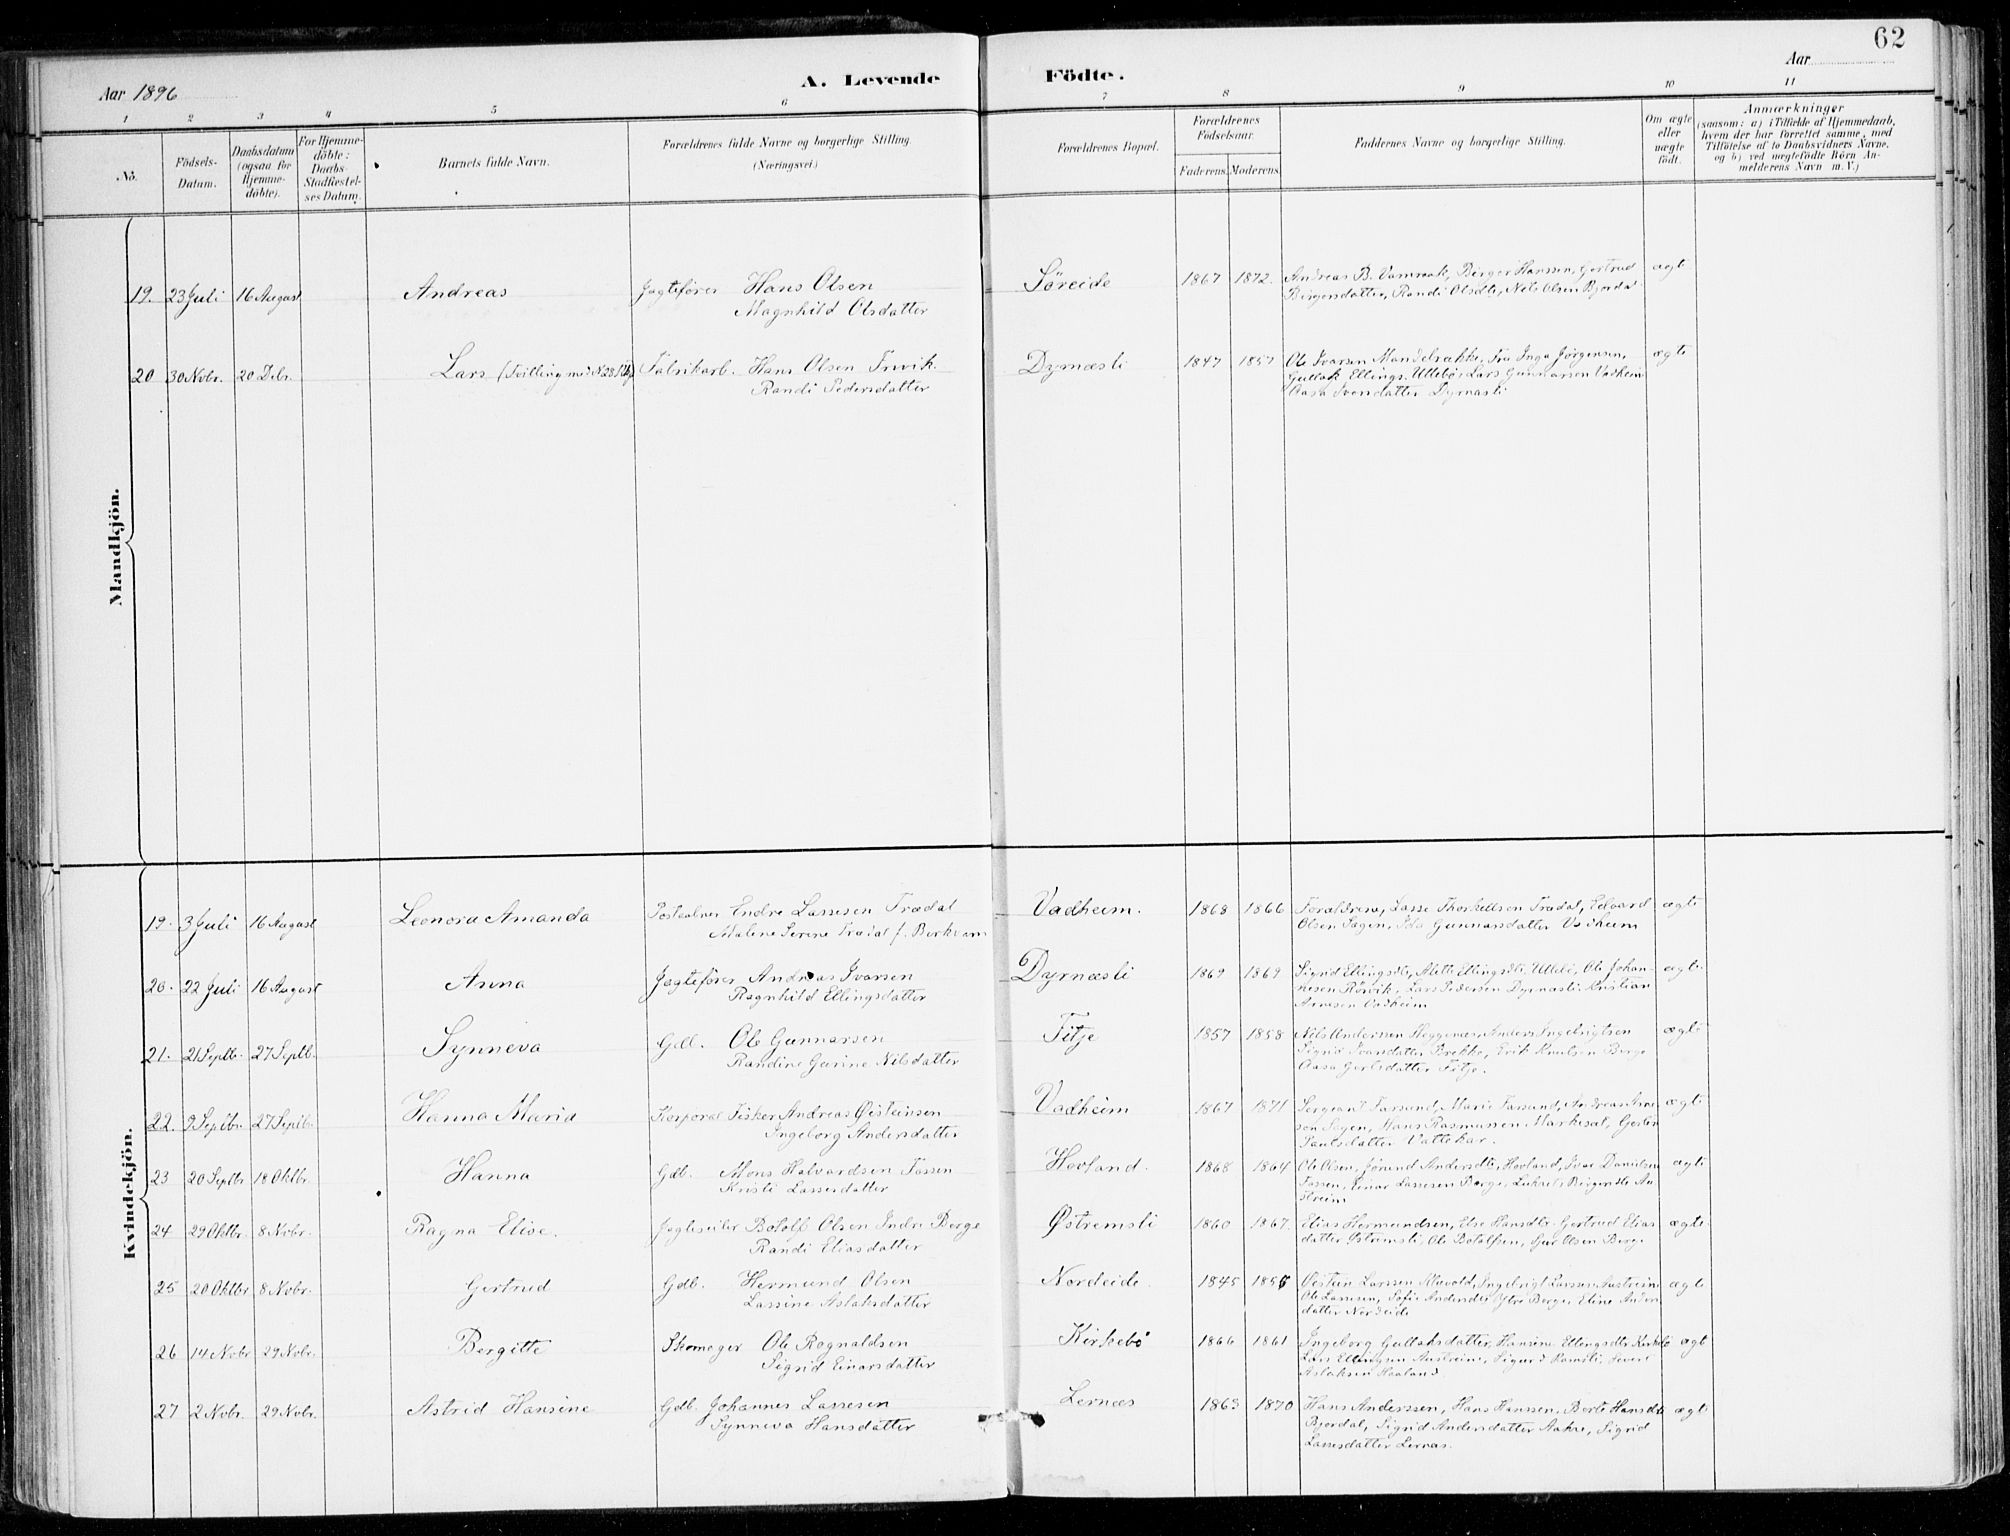 62
Aar 1896
A. Levende Födte.
Aar
1 2 3 4 5 6 7 8 9 10 11
No.
Födsels-Datum.
Daabsdatum (ogsaa for Hjemme-döbte).
For Hjemme-döbte: Daabs-Stadfæstel-ses Datum.
Barnets fulde Navn.
Forældrenes fulde Navne og borgerlige Stilling.
(Næringsvei.)
Forældrenes Bopæl.
Forældrenes Födselsaar.
Faderens. Moderens.
Faddernes Navne og borgerlige Stilling.
Om ægte eller uægte født.
Anmærkninger
(saasom: a) i Tilfælde af Hjemmedaab,
hvem der har forrettet samme, med
Tilföielse af to Daabsvidners Navne,
og b) ved uægtefödte Börn An-
melderens Navn m. V.)
Mandkjön.
19. 23 Juli 16 August Andreas Jagtefører Hans Olsen Søreide 1867 1872. Andreas B. Vamraak, Birger Hanssen, Gertrud ægte
Magnhild Olsdatter Birgersdatter, Randi Olsdtr, Nils Olsen Bjordal
20 30 Novbr. 20 Debr. Lars (Tvilling med N. 28 Fabrikarb. Hans Olsen Dyrnæsli 1847 1857 Ole Ivarsen Mandelrække, Fru Inga Jørgensen, ægte
Randi Pedersdatter Gullak Ellings. Ullebø, Lars Gunnarsen Vadheim
Aasa Ivarsdatter Dyrnæsli
Kvindekjön.
19. 3 Juli 16 August Leonora Amanda Endre Lassesen Trædal Vadheim. 1868 1866 Forældrene, Lasse Thorkellsen Trædal, Edvard ægte
Malene Serine Trædal f. Berkvam Olsen Sagen, Ida Gunnarsdatter Vadheim
20. 22 Juli 16 August Anna Jagtefører Andreas Ivarsen Dyrnæsli 1869 1869 Sigrid Ellingsdtr, Alette Ellingsdtr. Ullebø, Ole Johan- ægte.
Ragnhild Ellingsdatter nesen Rörvik, Lars Pedersen Dyrnæsli. Kristian
Arnesen Vadheim
21. 21 Septb. 27 Septb. Synneva Gdb. Ole Gunnarsen Fitje 1857 1858 Nils Andersen Heggenæs, Anders Ingebrigtsen ægte
Randine Gurine Nilsdatter Sigrid Ivarsdatter Brekke, Erik Knutsen Berge
Aasa Gerlsdatter Fitje.
22. 9 Septbr. 27 Septb. Hanna Maria Korporal Fisker Andreas Øisteinsen Vadheim 1867 1871 Sergeant Farsund, Marie Farsund, Andreas Arne- ægte
Ingeborg Andersdatter sen Sagen, Hans Rasmussen Markeset,
Paulsdatter Vattekar.
23 20 Septbr 18 Oktbr. Hanna Gdb. Mons Halvardsen Tossen Hovland. 1868 1864 Ole Olsen, Jörund Andersdtr, Hovland, Ivar Danielsen ægte
Kristi Lassesdatter Tossen, Einar Lassesen Berge, Birgersdtr Au-
streim
24 29 Oktbr. 8 Novbr. Ragna Elise. Jagteseiler Botolf Olsen Indre Berge Østremsli 1860 1867. Elias Hermundsen, Else Hansdtr. Gertrud Elias ægte.
Randi Eliasdatter datter Østremsli, Ole Botolfsen, Olsen Berge
25 20 Oktbr 8 Novbr. Gertrud Gdb. Hermund Olsen Nordeide. 1845 1856 Øistein Larssen, Ingebrigt Larsen Austreim ægte
Lassine Aslaksdatter Ole Lassesen, Sofie Andersdtr Ytre Berge, Eline Anders
datter Nordeide
26 14 Novbr 29 Novbr. Bergitte Skomager Ole Rognaldsen Kirkebø 1866 1861 Ingeborg Gullaksdatter, Hansine Ellingsdtr Kirkebø ægt
Sigrid Einarsdatter Lars Ellingsen Austreim, Sigurd Ramsli, Sever
Aslaksen Hovland.
27 2 Novbr. 29 Novbr. Astrid Hansine Gdb. Johannes Lassesen Lernæs 1863 1870 Hans Anderssen, Hans Hanssen, Berte Hansdtr ægt
Synneva Hansdatter Bjordal, Sigrid Andersdatter Aakre, Sigrid
Lassesdatter Lernæs.